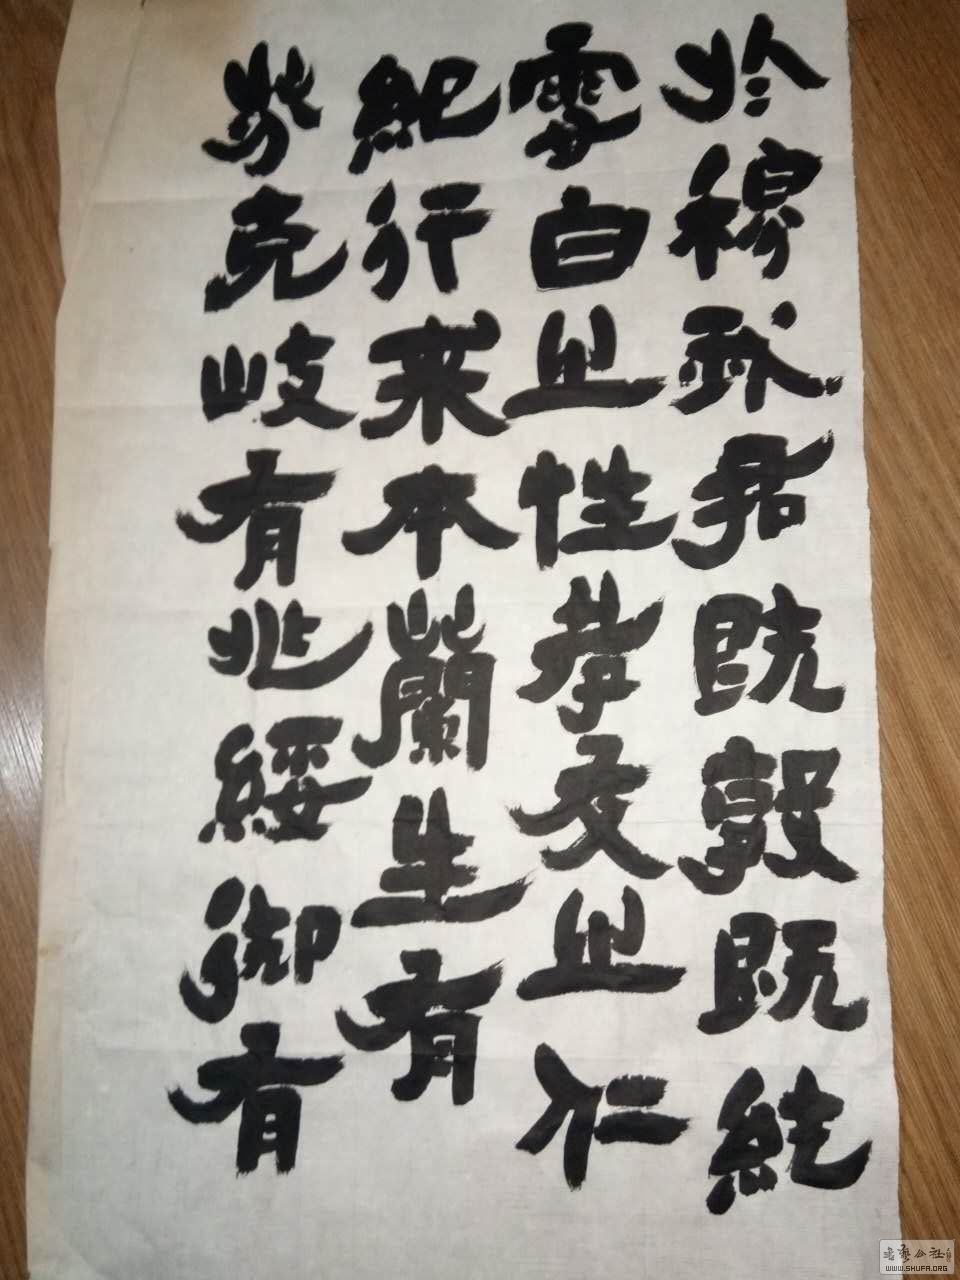 於穆我君既敦既純
雪白之性孝友之仁
紀行来本蘭生有
芬克岐有兆綏御有
書藝公社
WWW.SHUFA.ORG